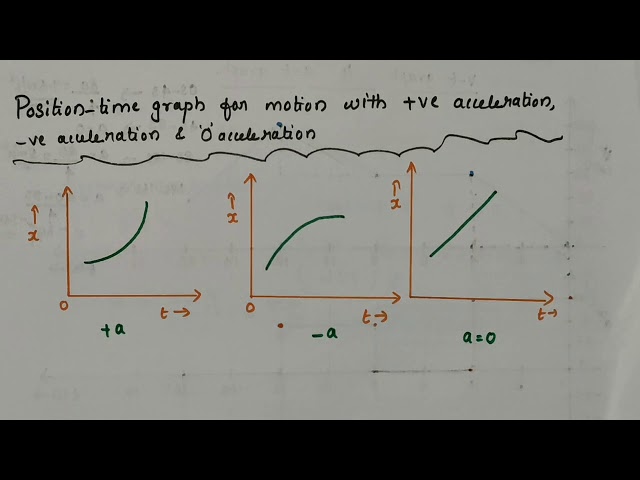 Position-time graph for motion with +ve acceleration,
-ve acceleration & '0' acceleration
x→
0
t→
+a
x→
0
t→
-a
x→
t→
a=0